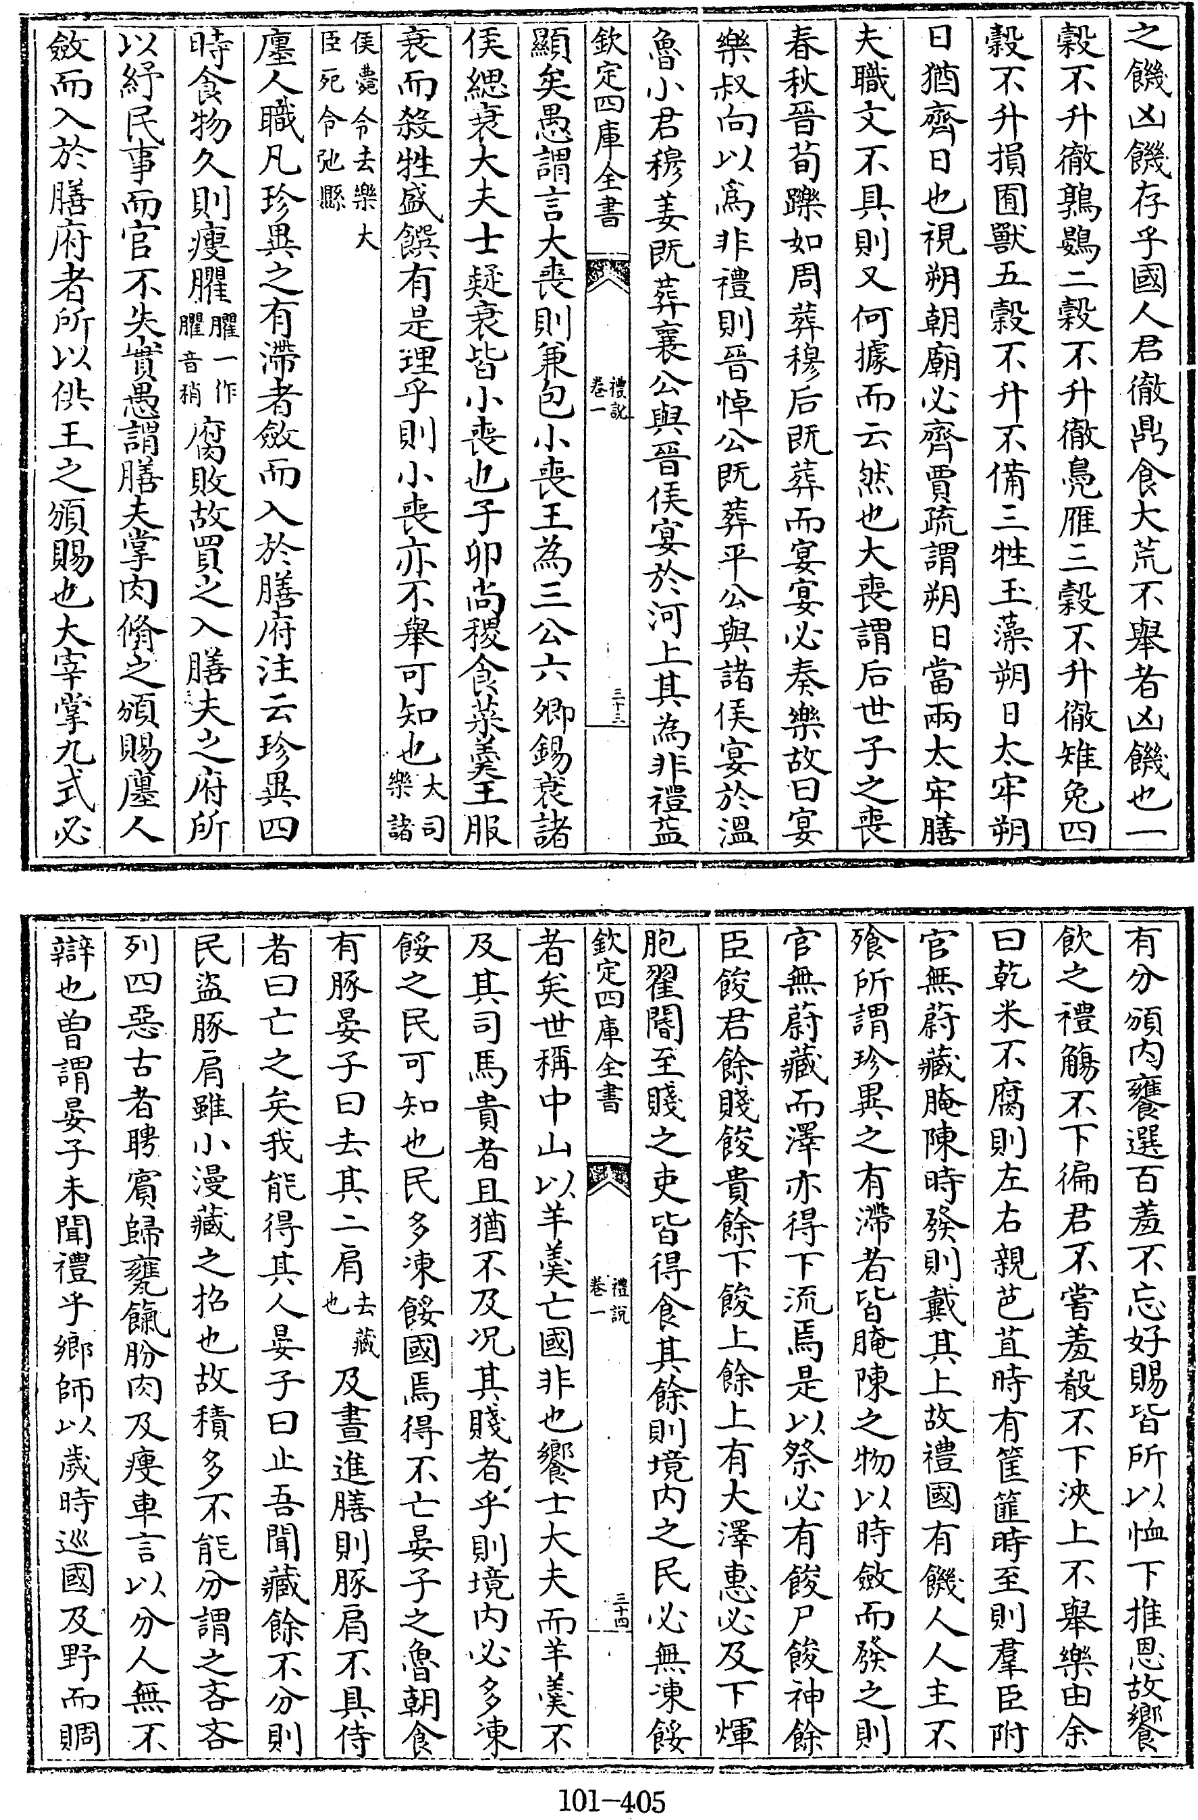 之饑凶饑存乎國人君徹鼎食大荒不舉者凶饑也一
穀不升徹鶉鷃二穀不升徹鳧雁三穀不升徹雉兔四
穀不升損囿獸五穀不升不備三牲玉藻朔日太牢朔
日猶齊日也視朔朝廟必齊賈疏謂朔日當兩太牢膳
夫職文不具則又何據而云然也大喪謂后世子之喪
春秋晉荀躒如周葬穆后既葬而宴宴必奏樂故曰宴
樂叔向以為非禮則晉悼公既葬平公與諸侯宴於溫
魯小君穆姜既葬襄公與晉侯宴於河上其為非禮益
欽定四庫全書 禮說 卷一 三十三
顯矣愚謂言大喪則兼包小喪王為三公六卿錫衰諸
侯緦衰大夫士疑衰皆小喪也子卯尚稷食菜羹王服
衰而殺牲盛饌有是理乎則小喪亦不舉可知也大司樂諸
侯薨令去樂大臣死令弛縣
廛人職凡珍異之有滯者斂而入於膳府注云珍異四
時食物久則瘦臞臞一作臞音稍腐敗故買之入膳夫之府所
以紓民事而官不失實愚謂膳夫掌肉脩之頒賜廛人
斂而入於膳府者所以供王之頒賜也大宰掌九式必
有分頒内饔選百羞不忘好賜皆所以恤下推恩故饗
飲之禮觴不下徧君不嘗羞殽不下浹上不舉樂由余
曰乾米不腐則左右親苞苴時有筐篚時至則羣臣附
官無蔚藏腌陳時發則戴其上故禮國有饑人人主不
飱所謂珍異之有滯者皆腌陳之物以時斂而發之則
官無蔚藏而澤亦得下流焉是以祭必有餕尸餕神餘
臣餕君餘賤餕貴餘下餕上餘上有大澤惠必及下煇
胞翟閽至賤之吏皆得食其餘則境内之民必無凍餒
欽定四庫全書 禮說 卷一 三十四
者矣世稱中山以羊羹亡國非也饗士大夫而羊羹不
及其司馬貴者且猶不及況其賤者乎則境内必多凍
餒之民可知也民多凍餒國焉得不亡晏子之魯朝食
有豚晏子曰去其二肩去藏也及晝進膳則豚肩不具侍
者曰亡之矣我能得其人晏子曰止吾聞藏餘不分則
民盜豚肩雖小漫藏之招也故積多不能分謂之吝吝
列四惡古者聘賓歸饔餼肦肉及廋車言以分人無不
辯也曾謂晏子未聞禮乎鄉師以歲時巡國及野而賙
101-405